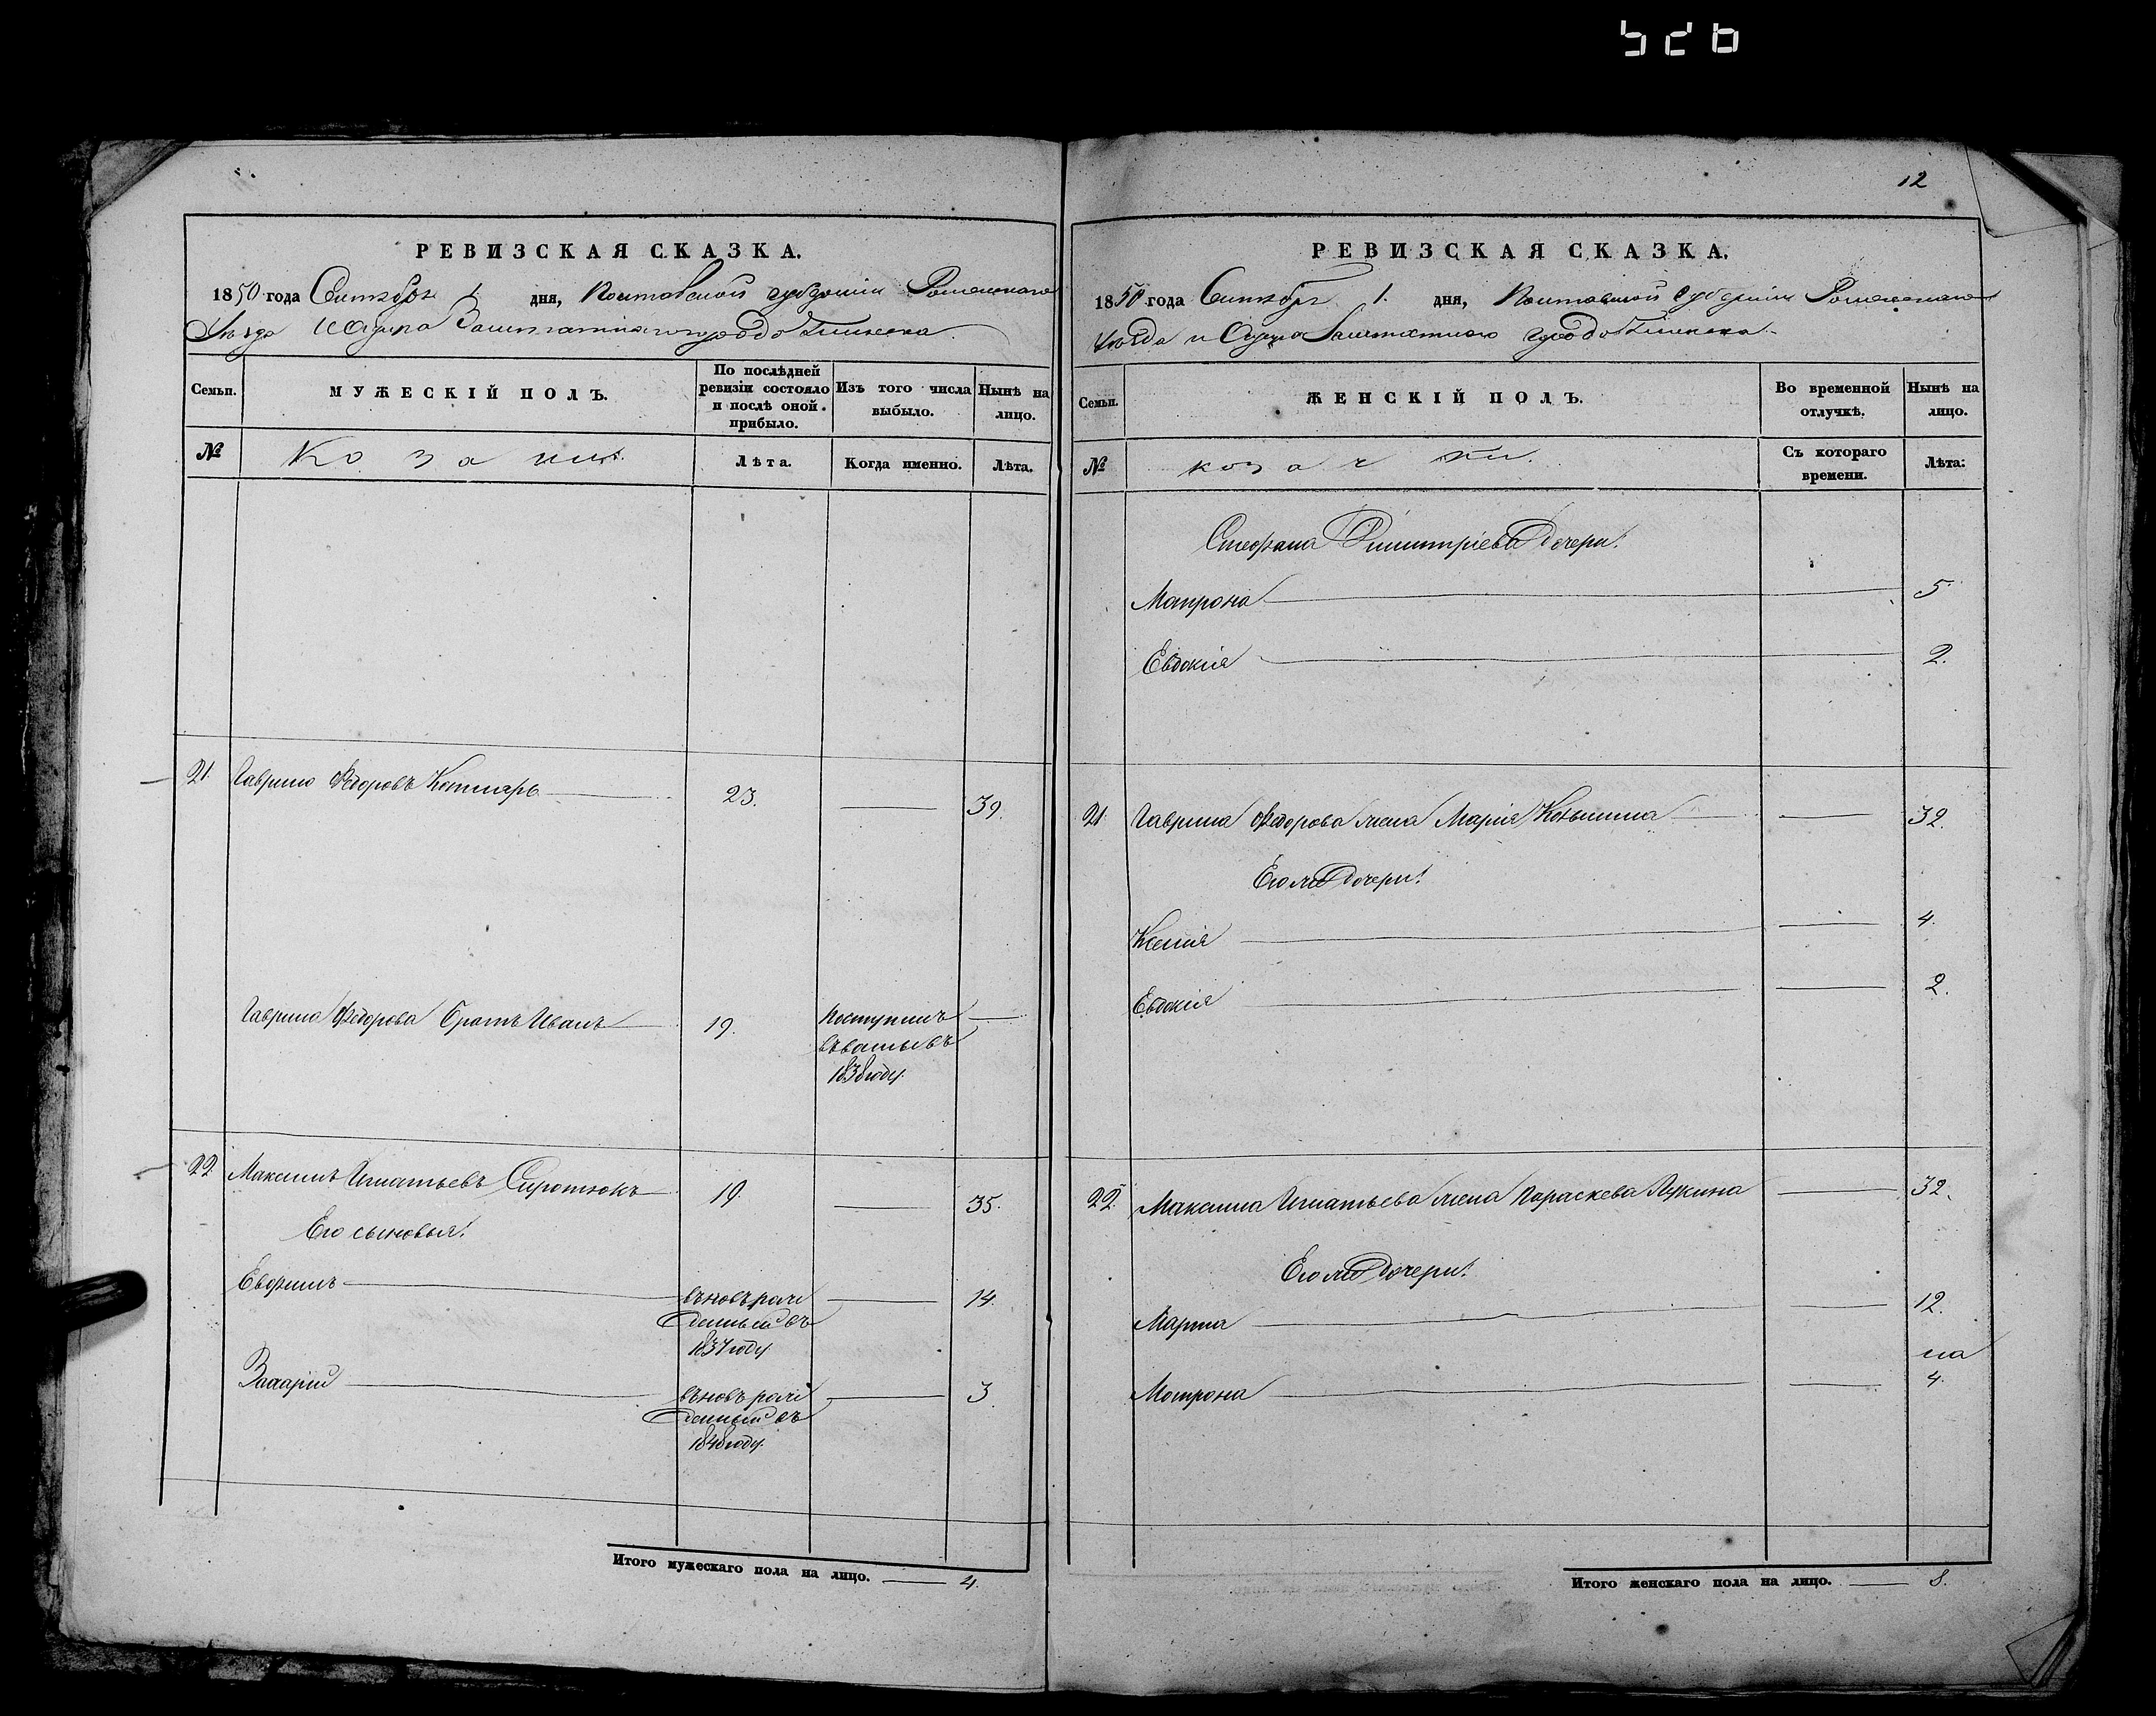 526
РЕВИЗСКАЯ СКАЗКА.
1850 года Сентября 1. дня, Полтавской губернии Роменского
Уезда и Округа Заштатного города Глинска
Семьи.
МУЖЕСКІЙ ПОЛЪ.
По послѣдней ревизіи состояло и послѣ оной прибыло.
Изъ того числа выбыло.
Нынѣ на лицо.
№
Козаки.
Лѣта.
Когда именно.
Лѣта.
21. Гаврило Федоровъ Котляръ 23. 39.
Гаврила Федорова братъ Иванъ 19. Поступилъ
1838 году.
22. Максимъ Игнатьевъ Сиротюкъ 19. 35.
Его сыновья:
Евфимъ вновь рож 14.
денный въ
1837 году
Захарій вновь рож 3
денный въ
1848 году.
Итого мужескаго пола на лицо. 4.
12
РЕВИЗСКАЯ СКАЗКА.
1850 года Сентября 1. дня, Полтавской Губернии Роменского
Уезда и Округа Заштатного города Глинска.
Семьи.
ЖЕНСКІЙ ПОЛЪ.
Во временной отлучкѣ.
Нынѣ на лицо.
№
козачки.
Съ котораго времени.
Лѣта:
Стефана Димитріева дочери:
Матрона 5
Евдокія 2.
21. Гаврила Федорова жена Марія 32.
Его же дочери:
Ксенія 4.
Евдокія 2.
22. Максима Игнатьева жена Параскева Лукина 32.
Его же дочери:
Марфа 12.
на
Мотрона 4.
Итого женскаго пола на лицо. 8.